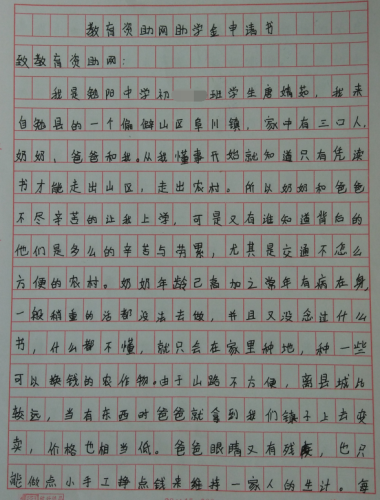 教育资助网助学金申请书
致教育资助网：
我是勉阳中学初班学生唐婧茹，我来
自勉县的一个偏僻山区阜川镇，家中有三口人，
奶奶、爸爸和我。从我懂事开始就知道只有凭读
书才能走出山区，走出农村。所以奶奶和爸爸
不尽辛苦的让我上学，可是又有谁知道背后的
他们是多么的辛苦与劳累，尤其是交通不怎么
方便的农村。奶奶年龄已高加之常年有病在身，
一般稍重的活都没法去做，并且又没念过什么
书，什么都不懂，就只会在家里种地，种一些
可以换钱的农作物。由于山路不方便，离县城比
较远，当有东西时爸爸就拿到我们镇子上去变
卖，价格也相当低。爸爸眼睛又有残疾，也只
能做点小手工挣点钱来维持一家人的生计。每